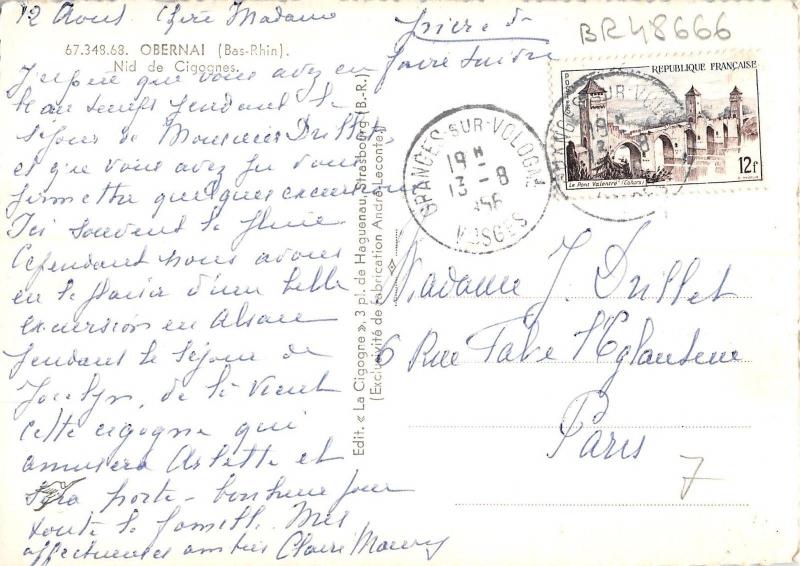 12 Août Chère Madame
67.348.68. OBERNAI (Bas-Rhin).
Nid de Cigognes.
J'espère que vous avez eu
beau temps pendant le
séjour de Monsieur Drillet
et que vous avez pu vous
permettre quelques excursions
Ici souvent la pluie
Cependant nous avons
eu le plaisir d'une belle
excursion en Alsace
pendant le séjour de
Jocelyn, de là vient
cette cigogne qui
amusera Arlette et
sera porte-bonheur pour
toute la famille. Mes
affectueuses amitiés Claire Maury
prière de
faire suivre
BR48666
Edit. « La Cigogne », 3 pl. de Haguenau, Strasbourg (B.-R.)
(Exclusivité de Fabrication André Leconte)
GRANGES-SUR-VOLOGNE
19 H
13 - 8
1956
VOSGES
POSTES
RÉPUBLIQUE FRANÇAISE
Le Pont Valentré (Cahors)
12f
Madame J. Drillet
6 Rue Fabre l'Eglantine
Paris
7